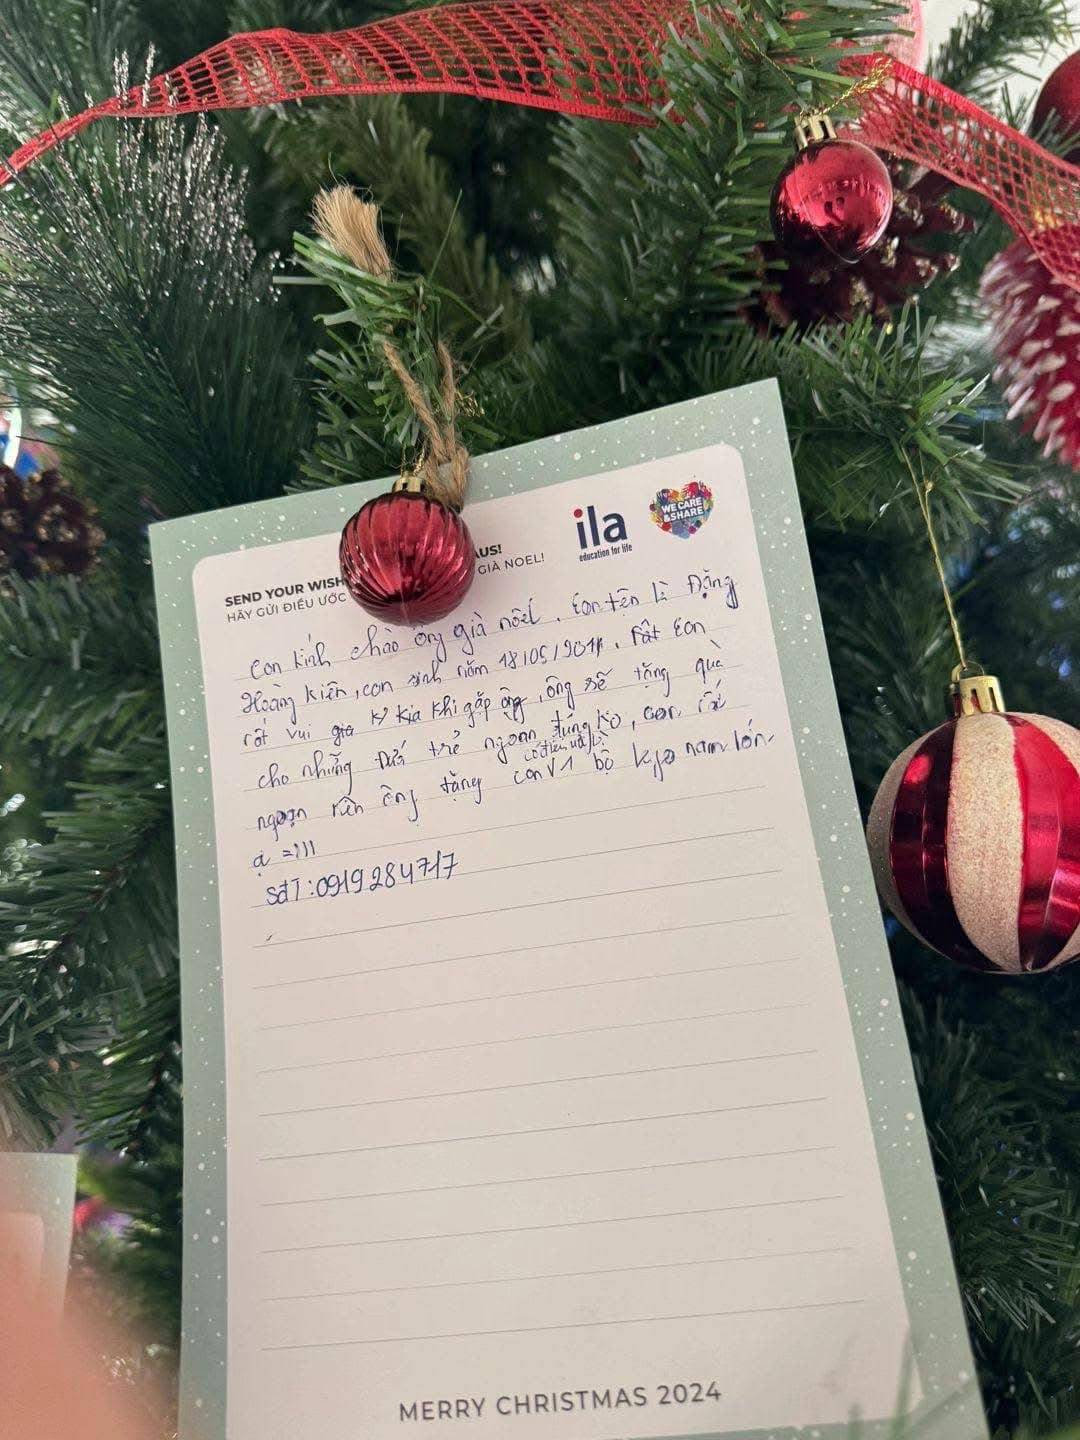 ila
education for life
WE CARE
& SHARE
SEND YOUR WISH AUS!
HÃY GỬI ĐIỀU ƯỚC GIÀ NOEL!
con kính chào ông già nôel. con tên là Đặng
Hoàng Kiên, con sinh năm 18/05/201. rất con
rất vui kì kia khi gặp ông, ông sẽ tặng quà
cho những đứa trẻ ngoan đúng ko, con rất
ngoan nên ông tặng con 1 bộ nam lớn
ạ =)))
sđT: 0919284717
MERRY CHRISTMAS 2024